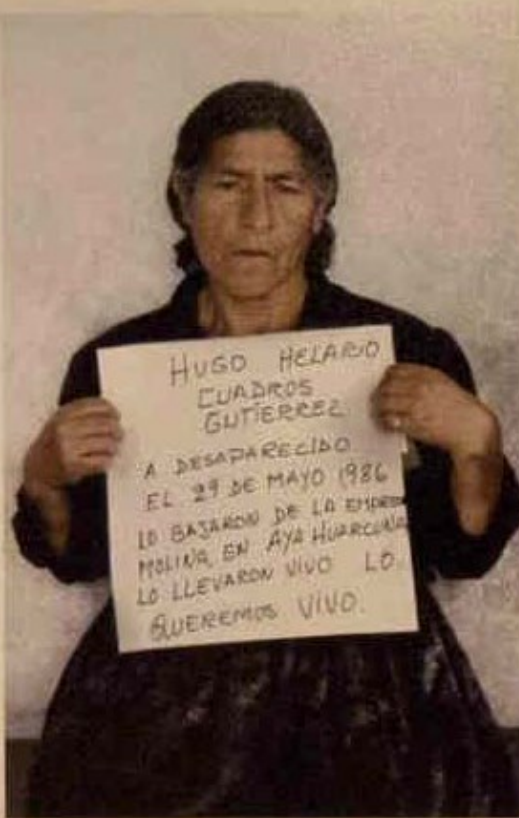 HUGO HELARIO
CUADROS
GUTIERREZ
A DESAPARECIDO
EL 29 DE MAYO 1986
LO BAJARON DE LA EMPRESA
MOLINA, EN AYA HUARCUNA
LO LLEVARON VIVO LO
QUEREMOS VIVO.